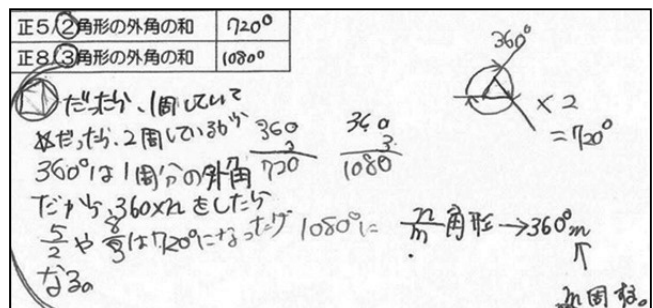 正5/②角形の外角の和 720°
正8/③角形の外角の和 1080°
だったら、1周していて
だったら、2周しているから
360°は1周分の外角
だから、360×nをしたら
5/2や8/3は720°になったり1080°に
なる。
360
2
720
360
3
1080
360°
×2
=720°
n/m角形→360°m
↑
m周する。